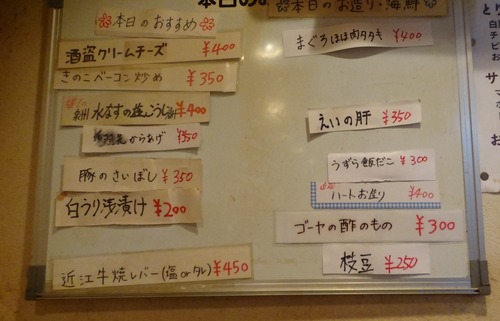 本日の
本日のおすすめ
酒盗クリームチーズ ¥400
きのこベーコン炒め ¥350
水なすの ¥400
からあげ ¥350
豚のさいぼし ¥350
白うり浅漬け ¥200
近江牛焼レバー(塩orタレ) ¥450
本日のお造り・海鮮
まぐろほほ肉タタキ ¥400
えいの肝 ¥350
うずら飯だこ ¥300
ハートお造り ¥400
ゴーヤの酢のもの ¥300
枝豆 ¥250